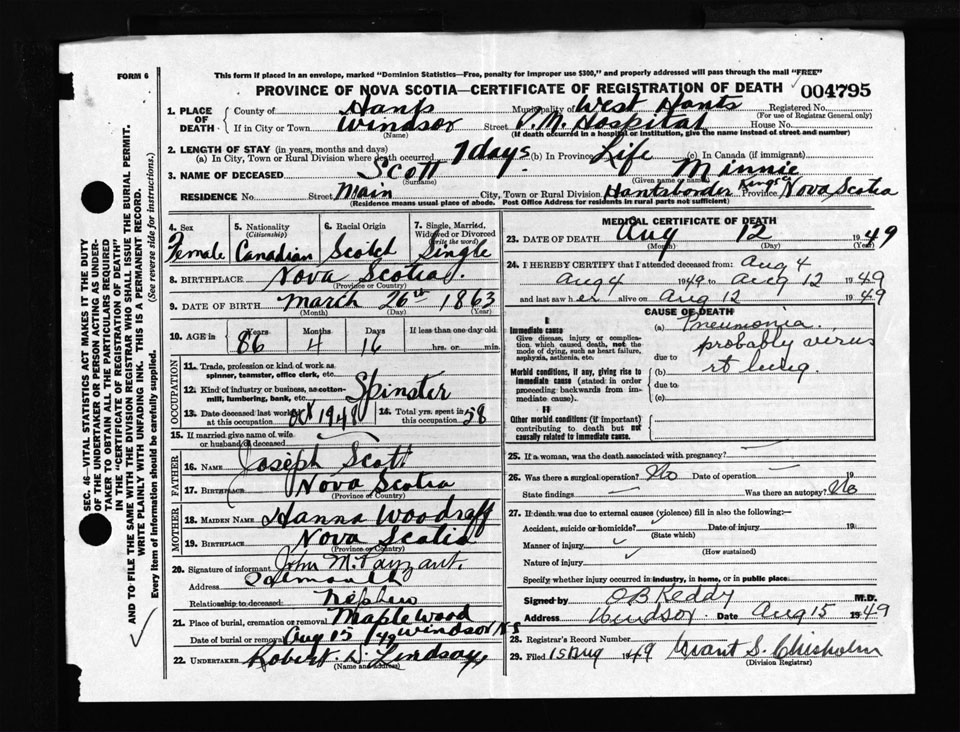 FORM 6
This form if placed in an envelope, marked "Dominion Statistics—Free, penalty for improper use $300," and properly addressed will pass through the mail "FREE"
PROVINCE OF NOVA SCOTIA—CERTIFICATE OF REGISTRATION OF DEATH 004795
1. PLACE OF DEATH County of Hants Municipality of West Hants Registered No.
(For use of Registrar General only)
If in City or Town Windsor Street P.M. Hospital House No.
(Name) (If death occurred in a hospital or institution, give the name instead of street and number)
2. LENGTH OF STAY (in years, months and days)
(a) In City, Town or Rural Division where death occurred 7 days (b) In Province Life (c) In Canada (if immigrant)
3. NAME OF DECEASED Scott Minnie
(Surname) (Given name or name)
RESIDENCE No. Street Main City, Town or Rural Division Hantsborder Kings Province Nova Scotia
(Residence means usual place of abode. Post Office Address for residents in rural parts not sufficient)
4. Sex 5. Nationality (Citizenship) 6. Racial Origin 7. Single, Married, Widowed or Divorced (write the word)
Female Canadian Scotch Single
8. BIRTHPLACE Nova Scotia.
(Province or Country)
9. DATE OF BIRTH March 26th 1863
(Month) (Day) (Year)
10. AGE in Years Months Days If less than one day old
86 4 16 hrs. or min.
OCCUPATION
11. Trade, profession or kind of work as spinner, teamster, office clerk, etc.
12. Kind of industry or business, as cotton-mill, lumbering, bank, etc. Spinster
13. Date deceased last worked at this occupation Oct 1948 14. Total yrs. spent in 58
15. If married give name of wife or husband of deceased
FATHER
16. NAME Joseph Scott
17. BIRTHPLACE Nova Scotia
(Province or Country)
MOTHER
18. MAIDEN NAME Hanna Woodroff
19. BIRTHPLACE Nova Scotia
(Province or Country)
20. Signature of informant John M. Payzant.
Address Falmouth
Relationship to deceased Nephew
21. Place of burial, cremation or removal Maplewood
Date of burial or removal Aug 15 1949 Windsor N-S
22. UNDERTAKER Robert D. Lindsay
(Name and address)
MEDICAL CERTIFICATE OF DEATH
23. DATE OF DEATH Aug 12 1949
(Month) (Day) (Year)
24. I HEREBY CERTIFY that I attended deceased from: Aug 4
Aug 4 1949 to Aug 12 1949
and last saw her alive on Aug 12 1949
CAUSE OF DEATH
I
Immediate cause (a) Pneumonia.
Give disease, injury or complication which caused death, not the mode of dying, such as heart failure, asphyxia, asthenia, etc.
probably virus
due to
Morbid conditions, if any, giving rise to immediate cause (stated in order proceeding backwards from immediate cause). (b) rt lung.
due to
(c)
II
Other morbid conditions (if important) contributing to death but not causally related to immediate cause.
25. If a woman, was the death associated with pregnancy?
26. Was there a surgical operation? No Date of operation 19
State findings Was there an autopsy? No
27. If death was due to external causes (violence) fill in also the following:
Accident, suicide or homicide? Date of injury 19
(State which)
Manner of injury
(How sustained)
Nature of injury
Specify whether injury occurred in industry, in home, or in public place
Signed by O B Keddy M.D.
Address Windsor Date Aug 15 1949
28. Registrar's Record Number
29. Filed 15 Aug 1949 Grant S. Chisholm
(Division Registrar)
SEC. 46—VITAL STATISTICS ACT MAKES IT THE DUTY OF THE UNDERTAKER OR PERSON ACTING AS UNDERTAKER TO OBTAIN ALL THE PARTICULARS REQUIRED IN THE "CERTIFICATE OF REGISTRATION OF DEATH" AND TO FILE THE SAME WITH THE DIVISION REGISTRAR WHO SHALL ISSUE THE BURIAL PERMIT.
WRITE PLAINLY WITH UNFADING INK. THIS IS A PERMANENT RECORD.
Every item of information should be carefully supplied. (See reverse side for instructions.)